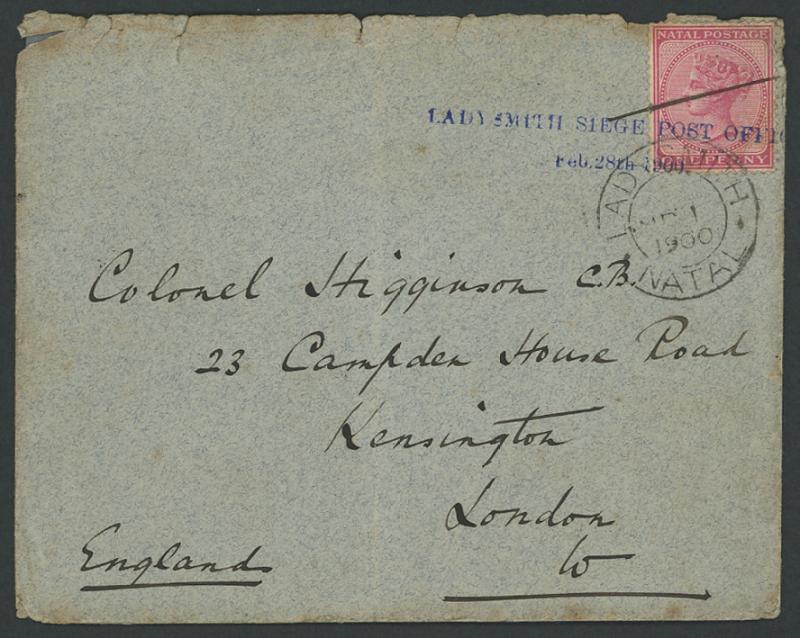 NATAL POSTAGE
LADYSMITH SIEGE POST OFFIC
Feb. 28th 1900.
PENNY
LADYSMITH
1
1900
NATAL
Colonel Higginson C.B.
23 Campden House Road
Kensington
London
W
England